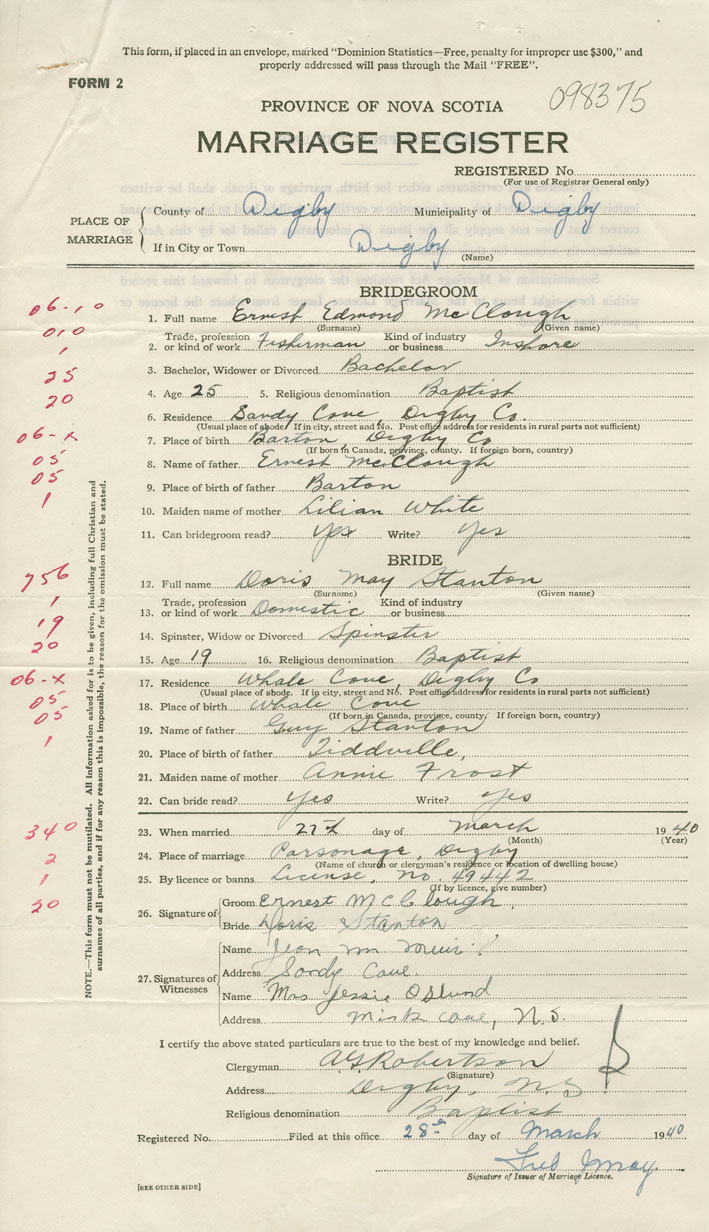 This form, if placed in an envelope, marked "Dominion Statistics—Free, penalty for improper use $300," and
properly addressed will pass through the Mail "FREE".
FORM 2
098375
PROVINCE OF NOVA SCOTIA
MARRIAGE REGISTER
REGISTERED No.
(For use of Registrar General only)
PLACE OF MARRIAGE
County of Digby Municipality of Digby
If in City or Town Digby
(Name)
BRIDEGROOM
06-10
1. Full name Ernest Edmond McClough
(Surname) (Given name)
010
2. Trade, profession or kind of work Fisherman Kind of industry or business Inshore
1
3. Bachelor, Widower or Divorced Bachelor
25
4. Age 25 5. Religious denomination Baptist
20
6. Residence Sandy Cove, Digby Co.
(Usual place of abode. If in city, street and No. Post office address for residents in rural parts not sufficient)
06-x
7. Place of birth Barton, Digby Co
(If born in Canada, province, county. If foreign born, country)
05
8. Name of father Ernest McClough
05
9. Place of birth of father Barton
1
10. Maiden name of mother Lilian White
11. Can bridegroom read? Yes Write? Yes
BRIDE
756
12. Full name Doris May Stanton
(Surname) (Given name)
1
13. Trade, profession or kind of work Domestic Kind of industry or business
19
14. Spinster, Widow or Divorced Spinster
20
15. Age 19 16. Religious denomination Baptist
06-x
17. Residence Whale Cove, Digby Co
(Usual place of abode. If in city, street and No. Post office address for residents in rural parts not sufficient)
05
18. Place of birth Whale Cove
(If born in Canada, province, county. If foreign born, country)
05
19. Name of father Guy Stanton
1
20. Place of birth of father Tiddville,
21. Maiden name of mother Annie Frost
22. Can bride read? Yes Write? Yes
340
23. When married 27th day of March 1940
(Month) (Year)
2
24. Place of marriage Parsonage, Digby
(Name of church or clergyman's residence or location of dwelling house)
1
25. By licence or banns License, no. 49442
(If by licence, give number)
20
26. Signature of
Groom Ernest McClough
Bride Doris Stanton
27. Signatures of Witnesses
Name Jean Muir
Address Sandy Cove.
Name Mrs Jessie Oslund
Address Mink Cove, N.S.
I certify the above stated particulars are true to the best of my knowledge and belief.
Clergyman A G Robertson
(Signature)
Address Digby, N.S.
Religious denomination Baptist
Registered No. Filed at this office 28th day of March 1940
Signature of Issuer of Marriage Licence.
[SEE OTHER SIDE]
NOTE.—This form must not be mutilated. All information asked for is to be given, including full Christian and
surnames of all parties, and if for any reason this is impossible, the reason for the omission must be stated.